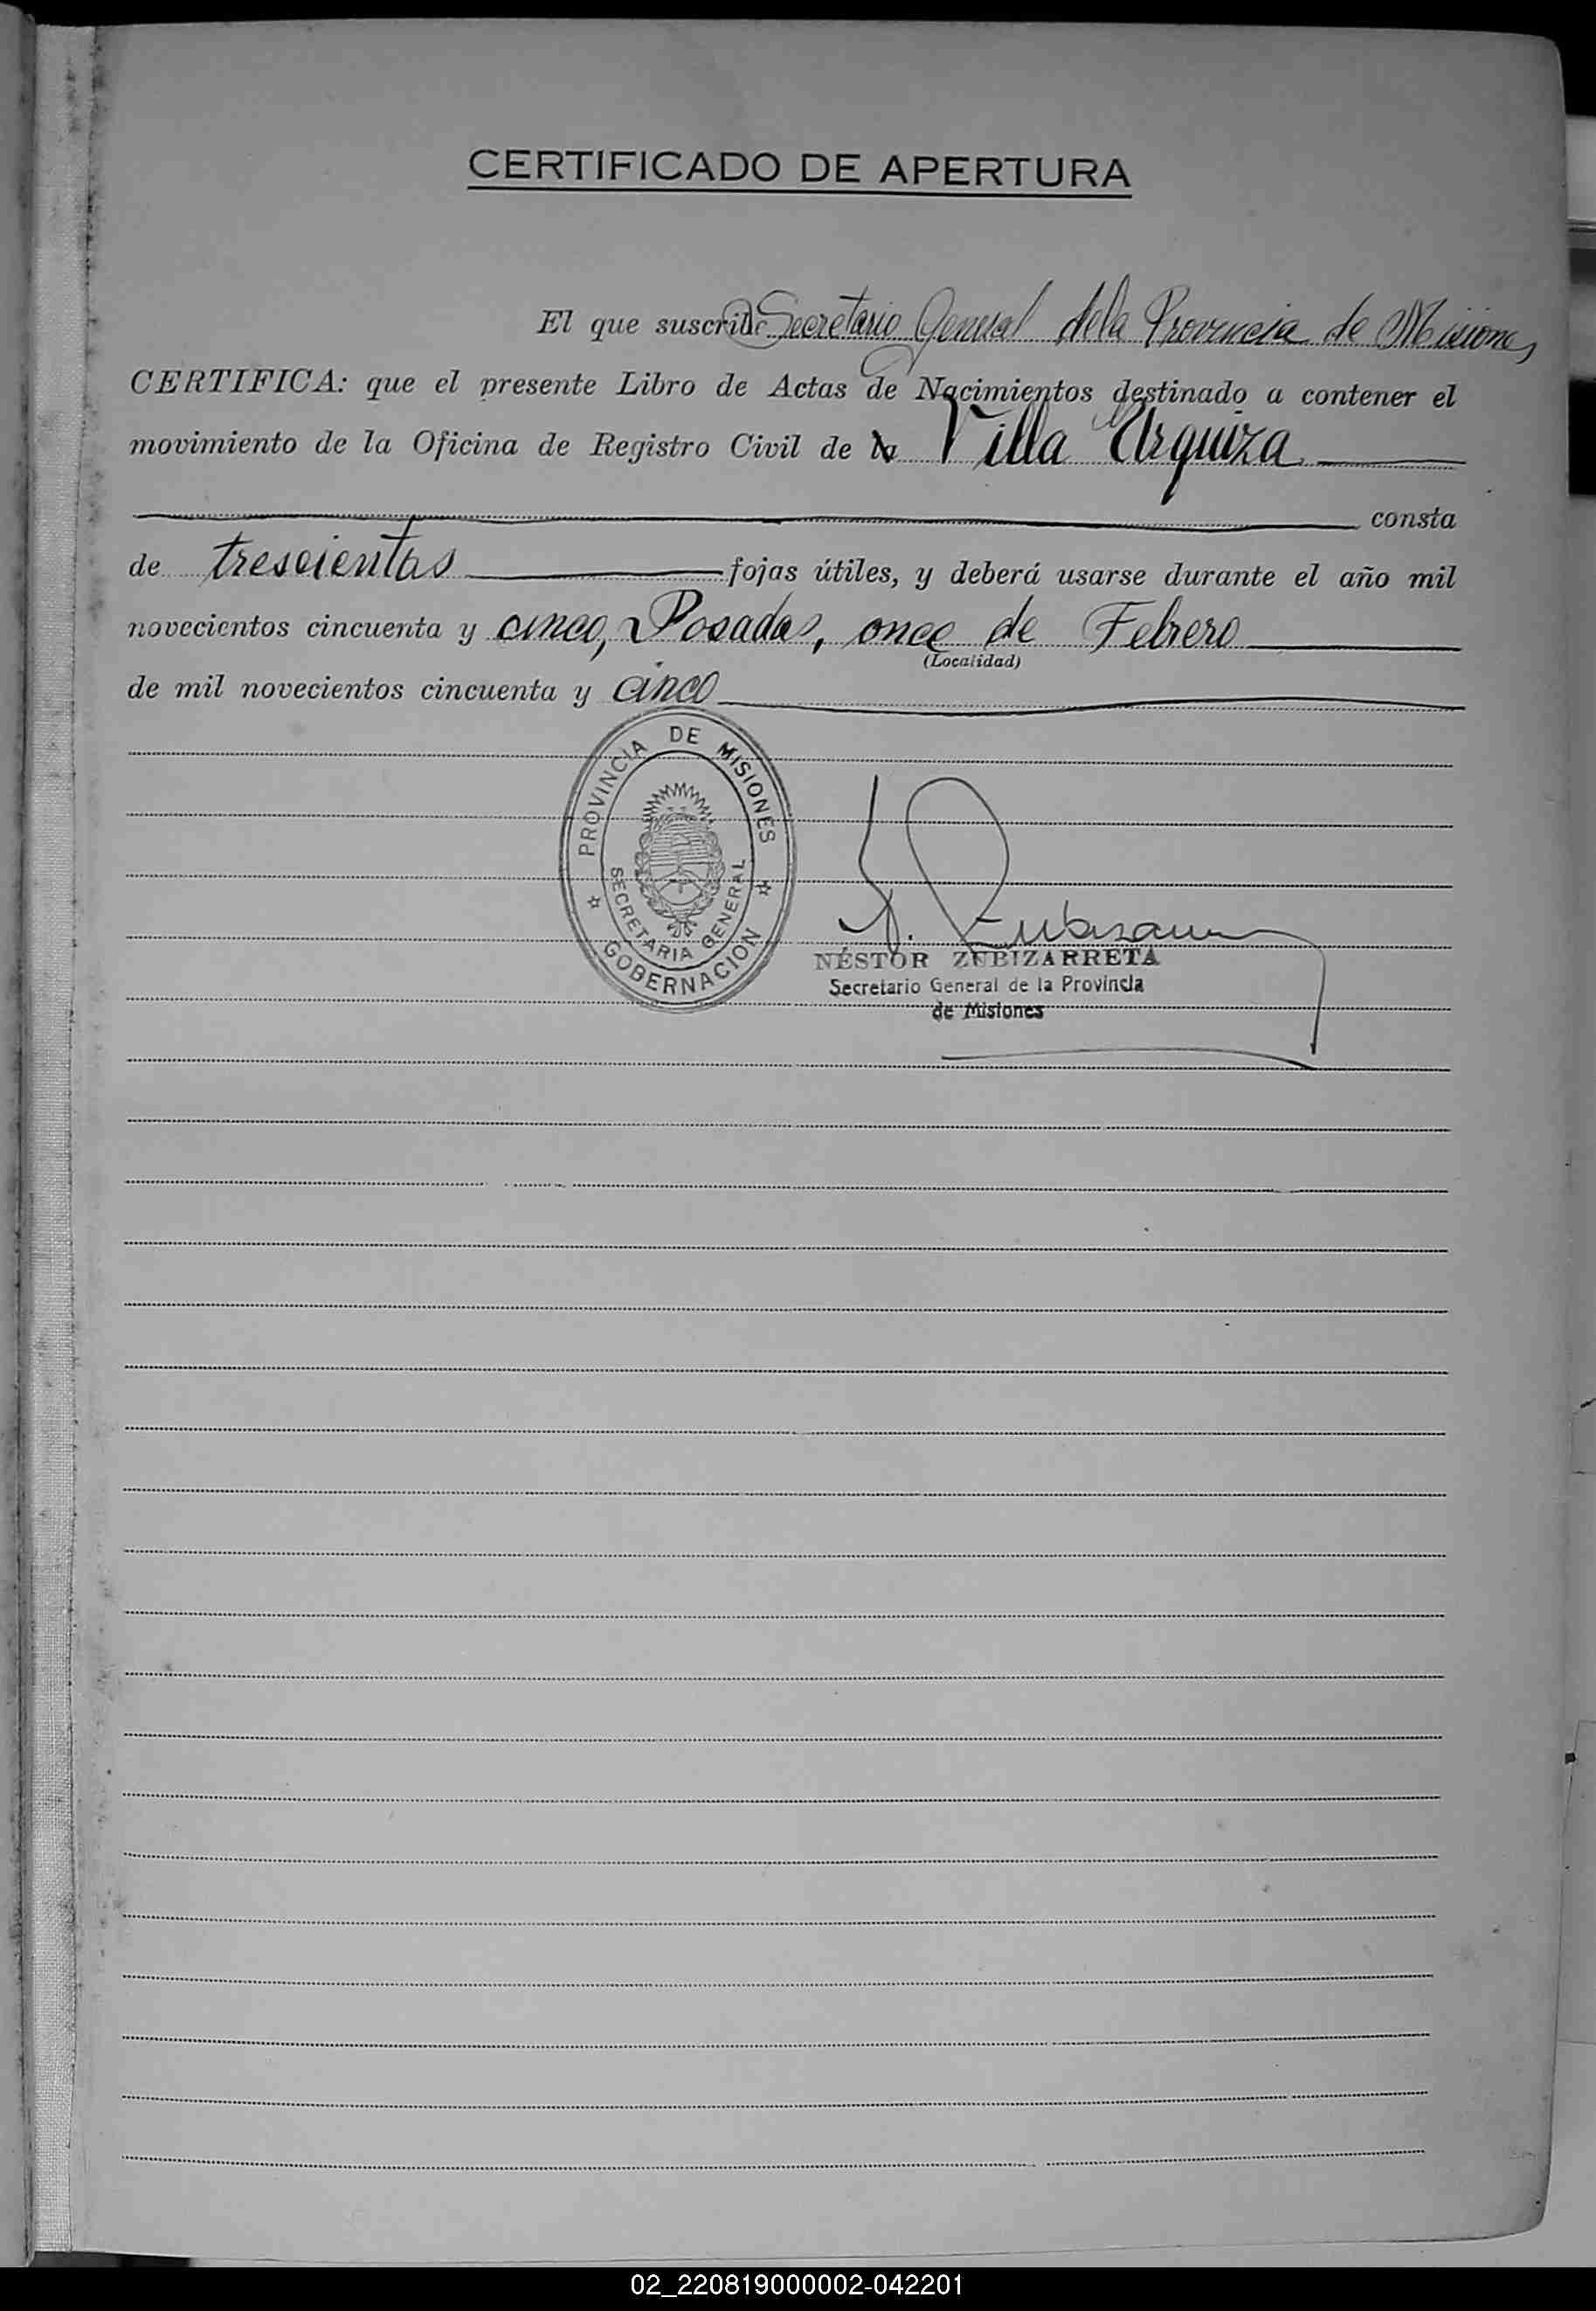 CERTIFICADO DE APERTURA
El que suscribe Secretario General de la Provincia de Misiones
CERTIFICA: que el presente Libro de Actas de Nacimientos destinado a contener el
movimiento de la Oficina de Registro Civil de la Villa Urquiza
consta
de trescientas fojas útiles, y deberá usarse durante el año mil
novecientos cincuenta y cinco, Posadas, once de Febrero
(Localidad)
de mil novecientos cincuenta y cinco
PROVINCIA DE MISIONES
SECRETARIA GENERAL
GOBERNACION
N. Zubizarreta
NÉSTOR ZUBIZARRETA
Secretario General de la Provincia
de Misiones
02_220819000002-042201